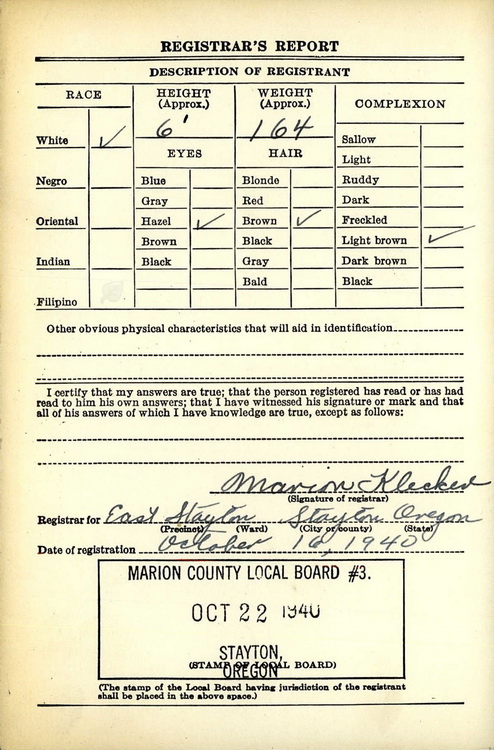 REGISTRAR'S REPORT
DESCRIPTION OF REGISTRANT
RACE
HEIGHT (Approx.)
WEIGHT (Approx.)
COMPLEXION
6'
164
White ✓
EYES
HAIR
Sallow
Light
Negro
Blue
Blonde
Ruddy
Gray
Red
Dark
Oriental
Hazel ✓
Brown ✓
Freckled
Brown
Black
Light brown ✓
Indian
Black
Gray
Dark brown
Bald
Black
Filipino
Other obvious physical characteristics that will aid in identification
I certify that my answers are true; that the person registered has read or has had
read to him his own answers; that I have witnessed his signature or mark and that
all of his answers of which I have knowledge are true, except as follows:
Marion Klecker
(Signature of registrar)
Registrar for East Stayton Stayton Oregon
(Precinct) (Ward) (City or county) (State)
Date of registration October 16, 1940
MARION COUNTY LOCAL BOARD #3.
OCT 22 1940
STAYTON,
(STAMP OF LOCAL BOARD)
OREGON
(The stamp of the Local Board having jurisdiction of the registrant
shall be placed in the above space.)